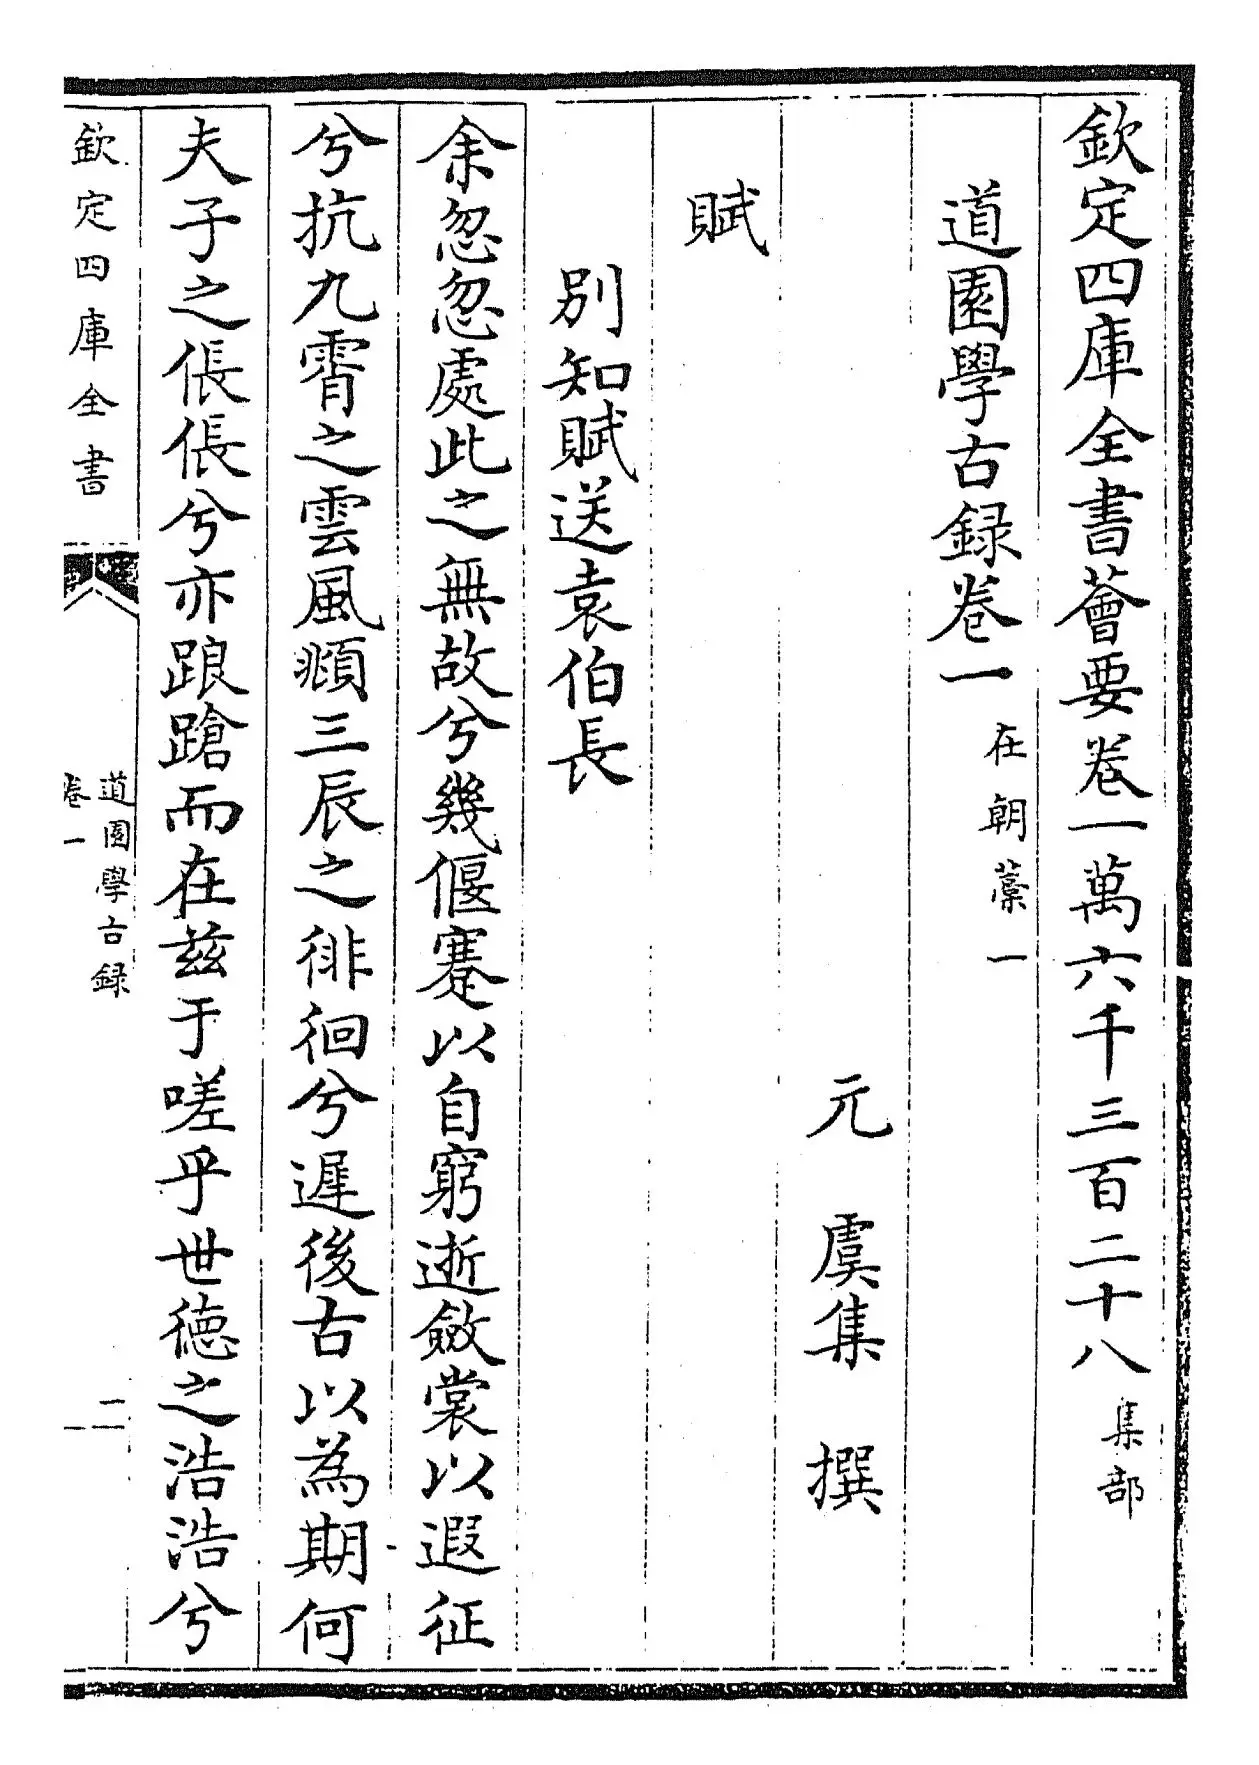 欽定四庫全書薈要卷一萬六千三百二十八 集部
道園學古録卷一 在朝藁一
元 虞集 撰
賦
别知賦送袁伯長
余忽忽處此之無故兮幾偃蹇以自窮逝斂裳以遐征
兮抗九霄之雲風頫三辰之徘徊兮遲後古以為期何
夫子之倀倀兮亦踉蹌而在兹于嗟乎世徳之浩浩兮
欽定四庫全書
道園學古録
卷一
二